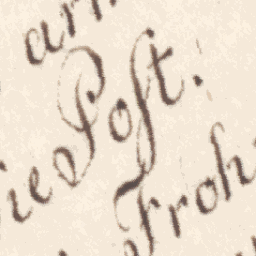 arm
ie Poſt.
Froh